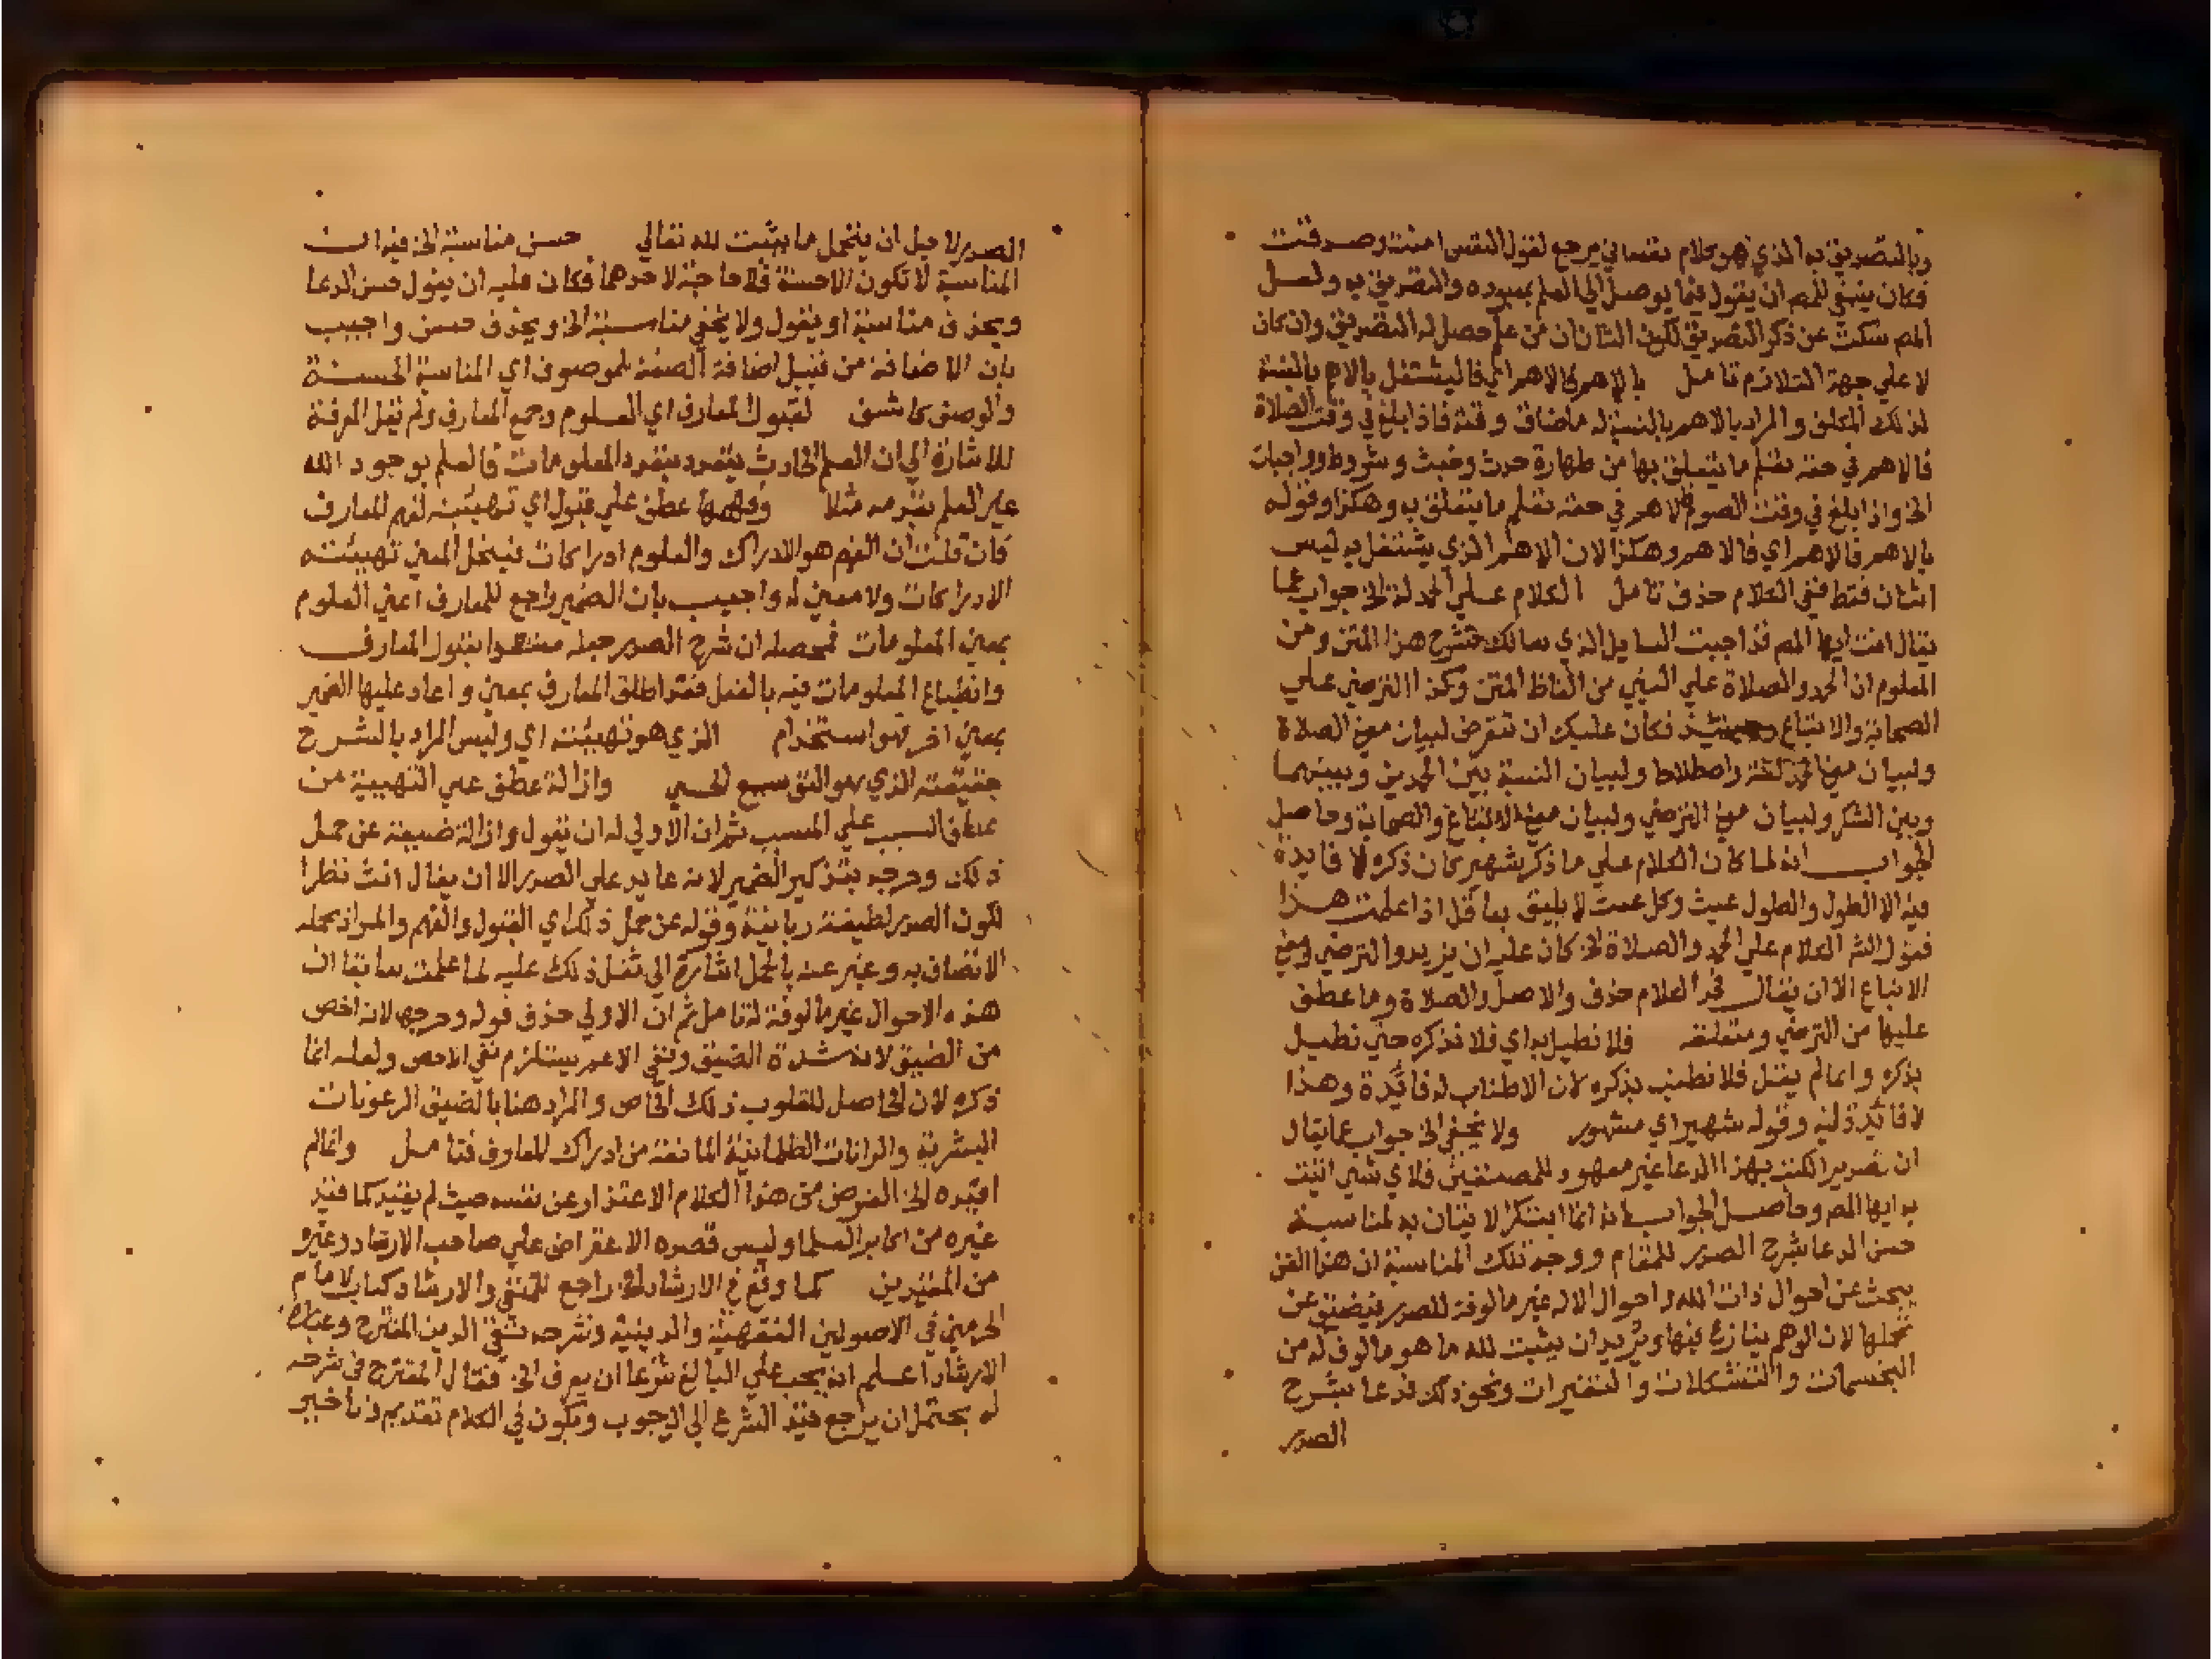 وبالتصديق به الذي هو كلام نفساني يرجع لقول النفس امنت وصدقت
فكان ينبغي للمص ان يقول فيما يوصل الي العلم بمعبوده والتصديق به ولعل
المص سكت عن ذكر التصديق لكون الشان ان من علم حصل له التصديق وان كان
لا علي جهة التلازم تامل بالاهم فالاهم اي فاليشتغل بالاهم بالنسبة
لذلك المكلف والمراد بالاهم بالنسبة له ما ضاق وقته فاذا بلغ في وقت الصلاة
فالاهم في حقه تعلم ما يتعلق بها من طهارة حدث وخبث وشروط وواجبات
الخ واذا بلغ في وقت الصوم فالاهم في حقه تعلم ما يتعلق به وهكذا وقوله
بالاهم فالاهم اي فالاهم وهكذا لان الاهم الذي يشتغل به ليس
اثنان فقط ففي الكلام حذف تامل الكلام علي الحمد لله الخ جواب عما
يقال انت ايها المص قد اجبت السايل الذي سالك بشرح هذا المتن ومن
المعلوم ان الحمد والصلاة علي النبي من الفاظ المتن وكذا الترضي علي
الصحابة والاتباع وحينئذ فكان عليك ان تتعرض لبيان معني الصلاة
ولبيان معني الحمد لغة واصطلاحا ولبيان النسبة بين الحمدين وبينهما
وبين الشكر ولبيان معني الترضي ولبيان معني الاتباع والصحابة وحاصل
الجواب انه لما كان الكلام علي ما ذكر شهير كان ذكره لا فايدة
فيه الا الطول والطول عبث وكل عبث لا يليق بعاقل اذا علمت هذا
فقول الش الكلام علي الحمد والصلاة الخ كان عليه ان يزيد والترضي ومعني
الاتباع الا ان يقال في الكلام حذف والاصل والصلاة وما عطف
عليها من الترضي ومتعلقه فلا نطيل به اي فلا نذكره حتي نطيل
بذكره وانما لم يقل فلا نطنب بذكره لان الاطناب له فائدة وهذا
لا فائدة فيه وقوله شهير اي مشهور ولا يخفي الخ جواب عما يقال
ان تصدير الكتب بهذا الدعا غير معهود للمصنفين فلاي شي اتيت
به ايها المص وحاصل الجواب انه انما ابتكر الاتيان به لمناسبة
حسن الدعا بشرح الصدر للمقام ووجه تلك المناسبة ان هذا الفن
يبحث عن احوال ذات الله واحوال الاله غير مالوفة للصدر يضيق عن
تحملها لان الوهم ينازع فيها ويريد ان يثبت لله ما هو مالوف له من
التجسمات والتشكلات والتغيرات ونحو ذلك فدعا بشرح
الصدر
الصدر لاجل ان يتحمل ما يثبت لله تعالي حسن مناسبة الخ فيه ان
المناسبة لا تكون الا حسنة فلا حاجة لاحدهما فكان عليه ان يقول حسن الدعا
ويحذف مناسبة او يقول ولا يخفي مناسبة الخ ويحذف حسن واجيب
بان الاضافة من قبيل اضافة الصفة للموصوف اي المناسبة الحسنة
والوصف كاشف لقبول المعارف اي العلوم وجمع المعارف ولم يقل المعرفة
للاشارة الي ان العلم الحادث يتعدد بتعدد المعلومات فالعلم بوجود الله
غير العلم بقدرته مثلا وفهمها عطف علي قبول اي تهيئته لفهم المعارف
فان قلت ان الفهم هو الادراك والعلوم ادراكات فينحل المعني تهيئته
الادراكات ولا معني له واجيب بان الضمير راجع للمعارف اعني العلوم
بمعني المعلومات فمحصله ان شرح الصدر جعله مستعدا لقبول المعارف
وانطباع المعلومات فيه بالفعل فقد اطلق المعارف بمعني واعاد عليها الضمير
بمعني اخر فهو استخدام الذي هو تهيئته اي وليس المراد بالشرح
حقيقته الذي هو التوسيع الحسي وازالة عطف علي التهيية من
عطف السبب علي المسبب ثم ان الاولي له ان يقول وازالة ضيقه عن حمل
ذلك وحرجه بتذكير الضمير لانه عايد علي الصدر الا ان يقال انث نظرا
لكون الصدر لطيفة ربانية وقوله عن حمل ذلك اي القبول والفهم والمراد بحمله
الاتصاف به وعبر عنه بالحمل اشارة الي ثقل ذلك عليه لما علمت سابقا ان
هذه الاحوال غير مالوفة له تامل ثم ان الاولي حذف قوله وحرجها لانه اخص
من الضيق لانه شدة الضيق ونفي الاعم يستلزم نفي الاخص ولعله انما
ذكره لان الحاصل للقلوب ذلك الخاص والمراد هنا بالضيق الرعونات
البشرية والرانات الظلمانية المانعة من ادراك المعارف فتامل وانما لم
اقيده الخ الغرض من هذا الكلام الاعتذار عن نفسه حيث لم يقيد كما قيد
غيره من اكابر العلما وليس قصده الاعتراض علي صاحب الارشاد وغيره
من المقيدين كما وقع في الارشاد الخ راجع للمنفي والارشاد كتاب لامام
الحرمين في الاصولين الفقهية والدينية وشرحه تقي الدين المقترح وعبارة
الارشاد اعلم انه يجب علي البالغ شرعا ان يعرف الخ فقال المقترح في شرحه
له يحتمل ان يراجع قيد الشرع الي الوجوب ويكون في الكلام تقديم وتاخير